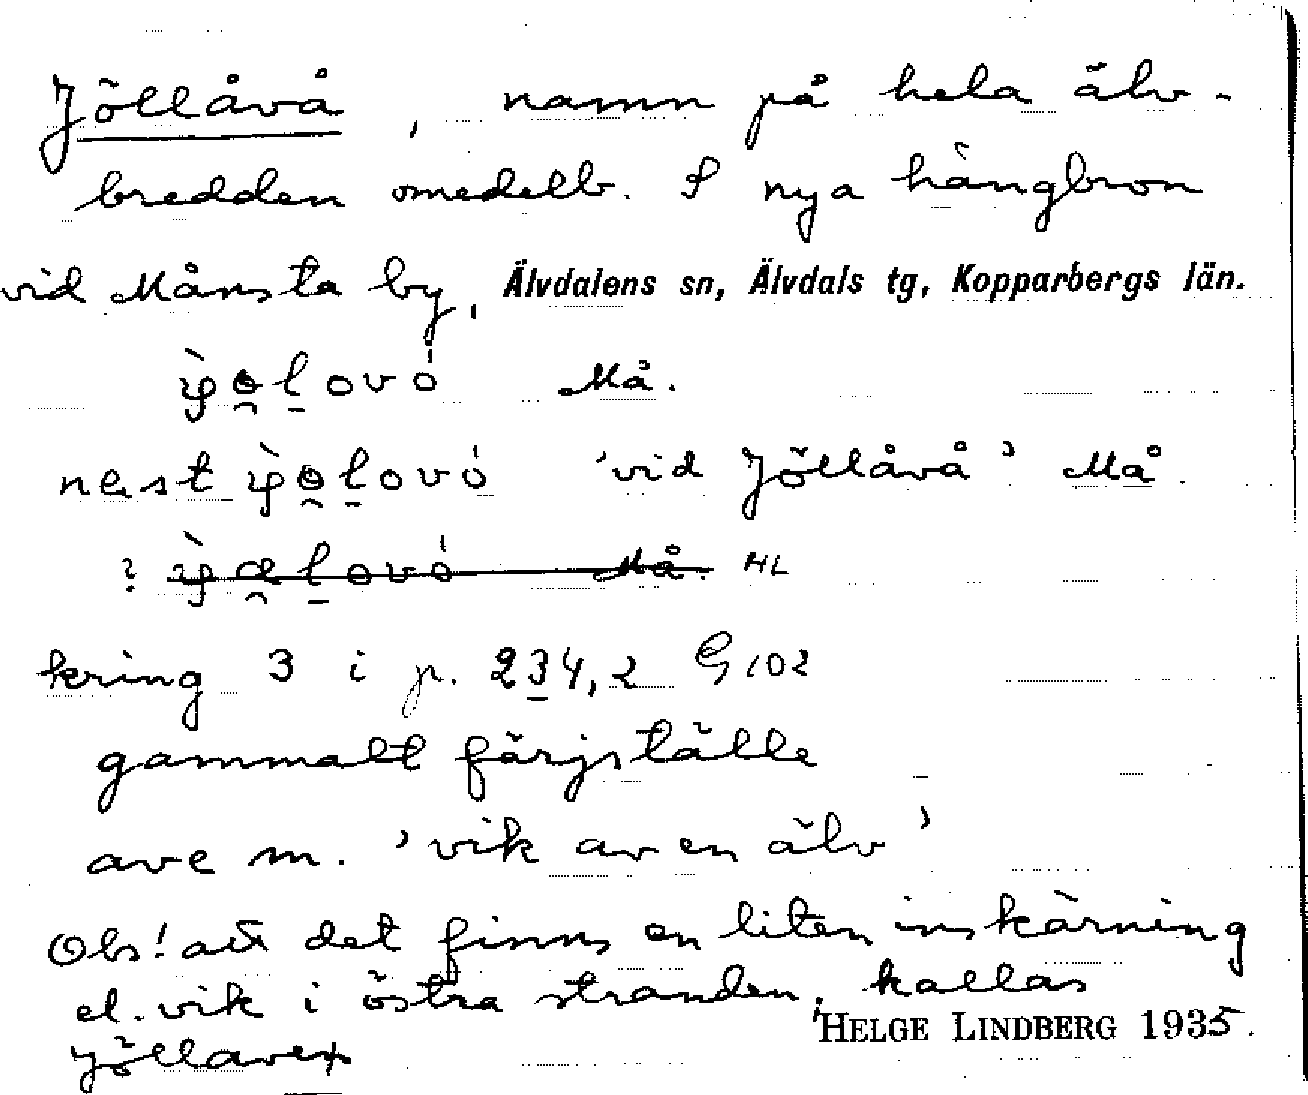 Jöllåvå, namn på hela älv-
bredden omedelb. S nya hängbron
vid Månsta by, Älvdalens sn, Älvdals tg, Kopparbergs län.
Må.
nest 'vid Jöllåvå' Må
? Må. HL
kring 3 i p. 234,2 G102
gammalt färjställe
ave m. 'vik av en älv'
Obs! att det finns en liten inskärning
el. vik i östra stranden, kallas
Jöllavex
HELGE LINDBERG 1935.